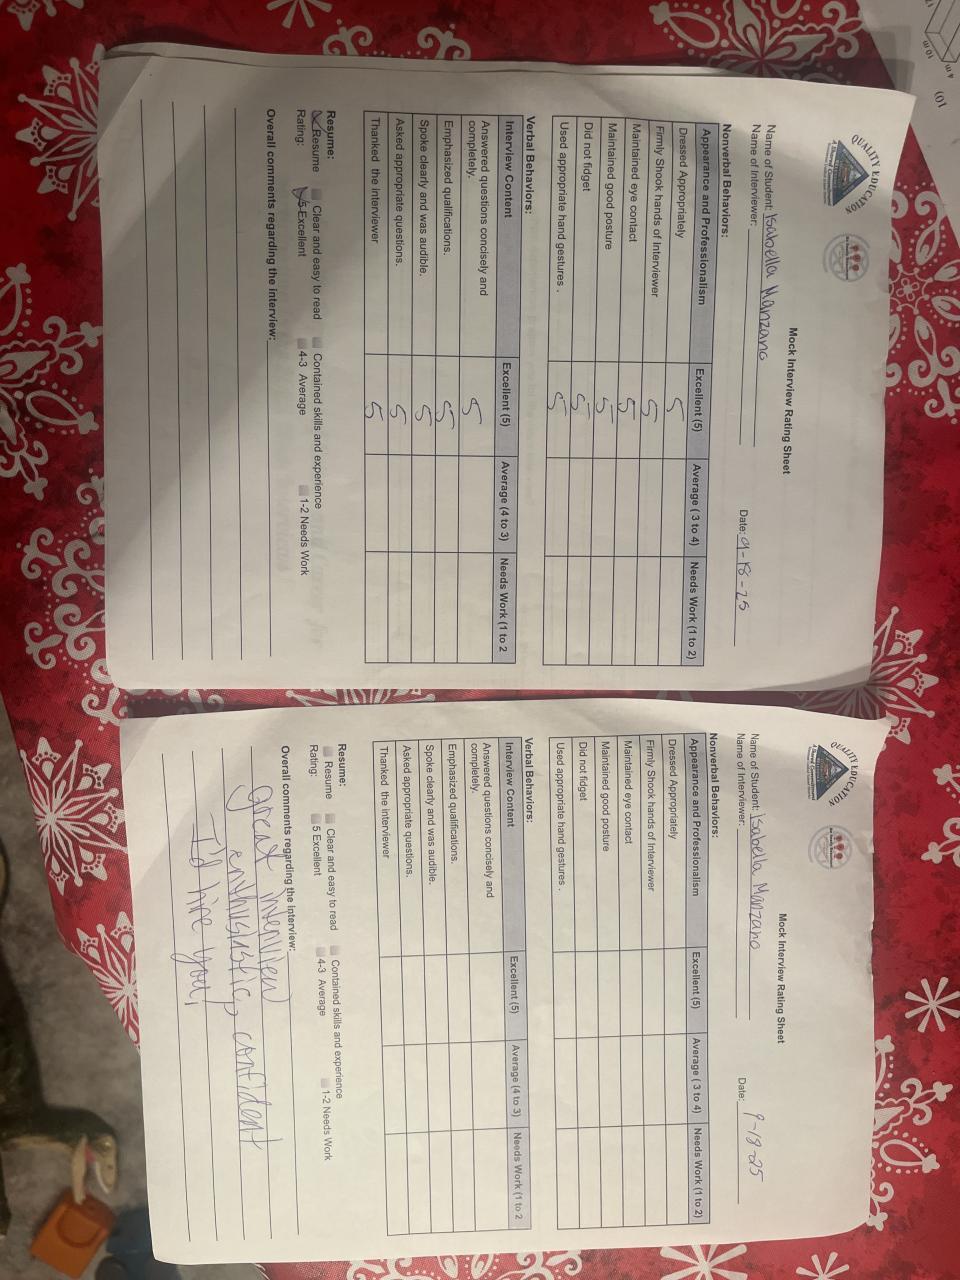 QUALITY EDUCATION
Mock Interview Rating Sheet
Name of Student: Isabella Manzano
Date: 9-18-25
Name of Interviewer:
Nonverbal Behaviors:
Appearance and Professionalism Excellent (5) Average ( 3 to 4) Needs Work (1 to 2)
Dressed Appropriately 5
Firmly Shook hands of Interviewer 5
Maintained eye contact 5
Maintained good posture 5
Did not fidget 5
Used appropriate hand gestures . 5
Verbal Behaviors:
Interview Content Excellent (5) Average (4 to 3) Needs Work (1 to 2
Answered questions concisely and
completely. 5
Emphasized qualifications. 5
Spoke clearly and was audible. 5
Asked appropriate questions. 5
Thanked the interviewer 5
Resume:
Resume Clear and easy to read Contained skills and experience
Rating: 5 Excellent 4-3 Average 1-2 Needs Work
Overall comments regarding the interview:
QUALITY EDUCATION
Mock Interview Rating Sheet
Name of Student: Isabella Manzano
Date: 9-18-25
Name of Interviewer:
Nonverbal Behaviors:
Appearance and Professionalism Excellent (5) Average ( 3 to 4) Needs Work (1 to 2)
Dressed Appropriately
Firmly Shook hands of Interviewer
Maintained eye contact
Maintained good posture
Did not fidget
Used appropriate hand gestures .
Verbal Behaviors:
Interview Content Excellent (5) Average (4 to 3) Needs Work (1 to 2
Answered questions concisely and
completely.
Emphasized qualifications.
Spoke clearly and was audible.
Asked appropriate questions.
Thanked the interviewer
Resume:
Resume Clear and easy to read Contained skills and experience
Rating: 5 Excellent 4-3 Average 1-2 Needs Work
Overall comments regarding the interview:
Great interview
enthusiastic, confident
I'd hire you!
10)
10 m
4 m